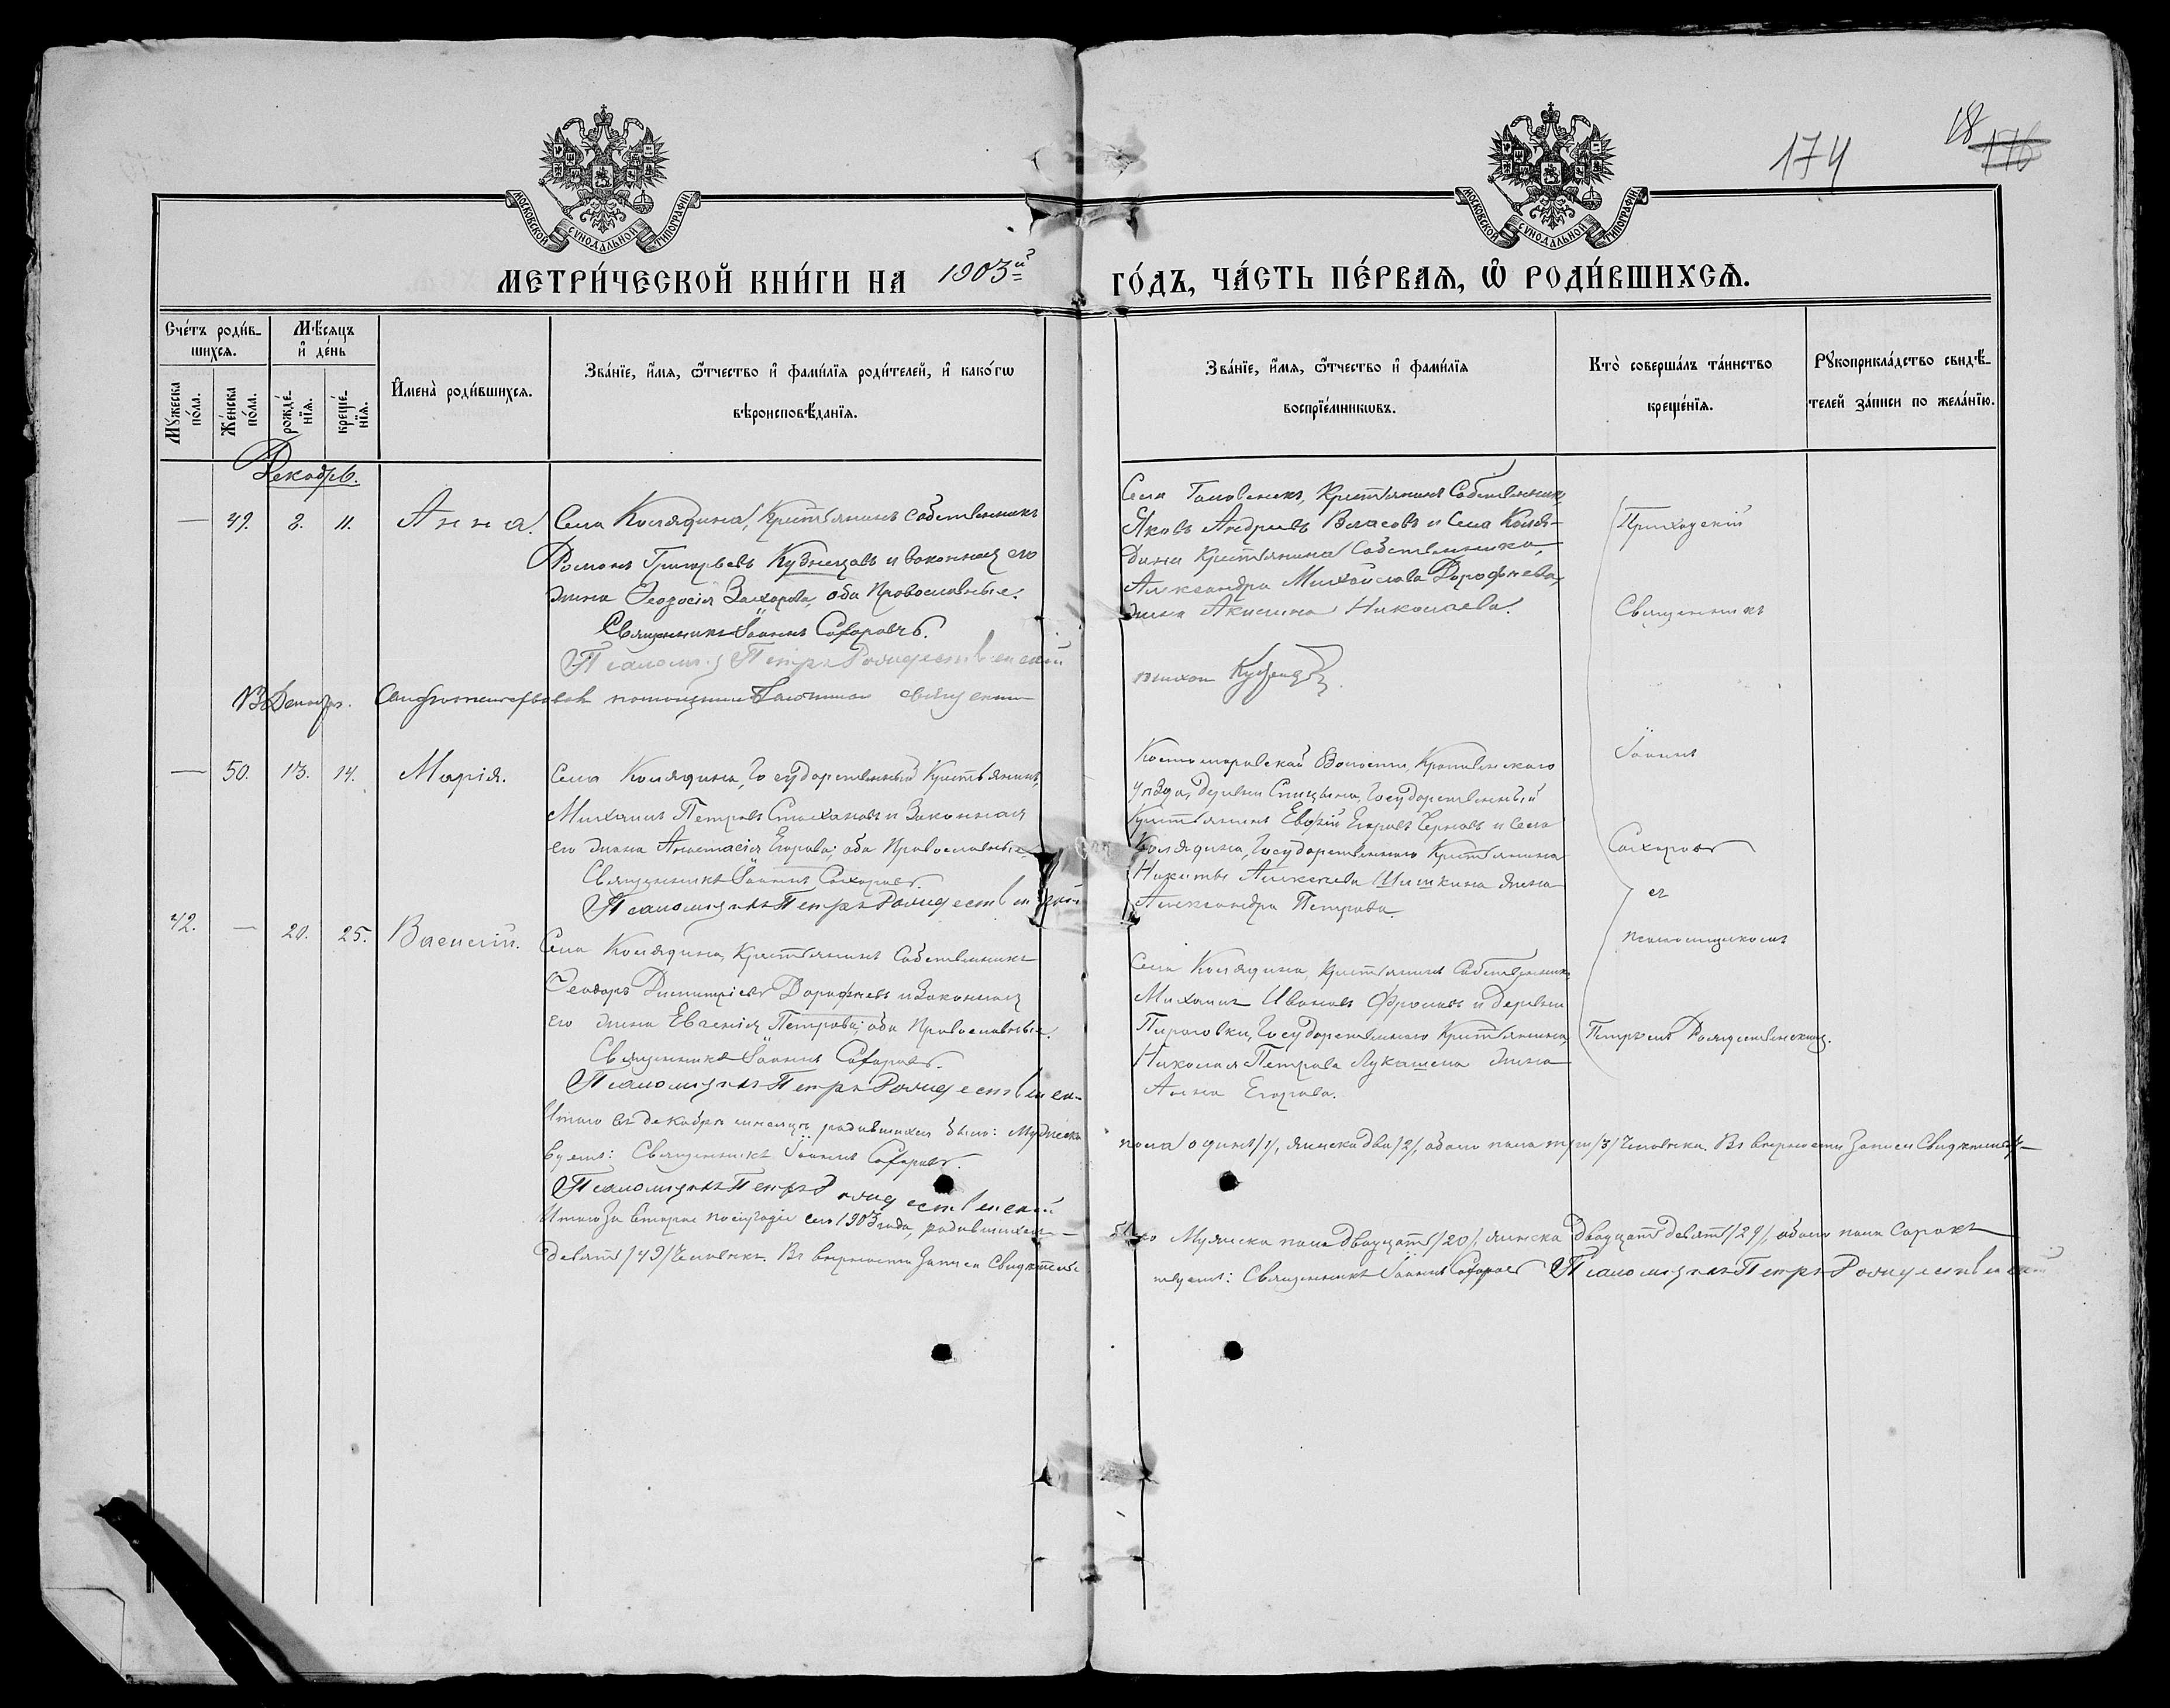 174
18
176
МОСКОВСКОЙ СУНОДАЛЬНОЙ ТИПОГРАФІИ
МОСКОВСКОЙ СУНОДАЛЬНОЙ ТИПОГРАФІИ
МЕТРИ́ЧЕСКОЙ КНИ́ГИ НА 1903й ГО́ДЪ, ЧА́СТЬ ПЕ́РВАѦ, Ѡ РОДИ́ВШИХСѦ.
Сче́тъ роди́в-
шихсѧ.
Мꙋжеска по́ла.
Же́нска по́ла.
Мѣ́сѧцъ
и҆ де́нь
рожде́-
нїѧ.
креще́-
нїѧ.
И҆мена̀ роди́вшихсѧ.
Зва́нїе, и҆́мѧ, ѻ҆́тчество и҆ фами́лїѧ роди́телей, и҆ како́гѡ
вѣроисповѣ́данїѧ.
Зва́нїе, и҆́мѧ, ѻ҆́тчество и҆ фами́лїѧ
воспрїе́мникѡвъ.
Кто̀ соверша́лъ та́инство
креще́нїѧ.
Рꙋкоприкла́дство свидѣ́-
телей за́писи по жела́нїю.
Декабрь.
— 49. 8. 11. Анна.
Села Колядина, Крестьянинъ собственникъ
Романъ Григорьевъ Кузнецовъ и законная его
жена Ѳеодосія Захарова, оба Православные.
Священникъ Іоаннъ Сахаровъ.
Псаломщ. Петръ Рождественскій
Села Крестьянинъ Собственникъ,
Яковъ Андреевъ Власовъ и Села Коля-
дина Крестьянина Собственника,
Александра Михайлова Дорофеева,
жена Акилина Николаева.
Приходскій
Священникъ
Іоаннъ
Сахаровъ
съ
псаломщикомъ
Петромъ Рождественскимъ.
— 50. 13. 14. Марія.
Села Колядина, Государственный Крестьянинъ,
Михаилъ Петровъ Стахановъ и Законная
его жена Анастасія Егорова, оба Православные
Священникъ Іоаннъ Сахаровъ.
Псаломщикъ Петръ Рождественскій
Костомаровской Волости, Крапивенскаго
уѣзда, деревни Спицына, Государственный
Крестьянинъ Егоровъ Черновъ и Села
Колядина, Государственнаго Крестьянина
Никиты Алексѣева Шишкина жена
Александра Петрова.
42. — 20. 25. Василій.
Села Колядина, Крестьянинъ Собственникъ
Ѳеодоръ Димитріевъ Дорофеевъ и Законная
его жена Евгенія Петрова; оба Православные.
Священникъ Іоаннъ Сахаровъ.
Псаломщикъ Петръ Рождественск
Села Колядина, Крестьянинъ Собственникъ
Михаилъ Ивановъ Фроловъ и деревни
Пироговки, Государственнаго Крестьянина,
Николая Петрова Лукашена жена
Анна Егорова.
Итого въ декабрѣ мѣсяцѣ родившихся было: Мужеска пола одинъ /1/, женска два /2/, обоего пола три /3/ человѣка. Въ вѣрности Записи Свидѣтельст-
вуемъ: Священникъ Іоаннъ Сахаровъ.
Псаломщикъ Петръ Рождественскій
Итого За второе полугодіе сего 1903 года, родившихся было Мужеска пола двадцать /20/, женска двадцать девять /29/, обоего пола Сорокъ
девять /49/ Человѣкъ. Въ вѣрности Записи Свидѣтельс твуемъ: Священникъ Іоаннъ Сахаровъ Псаломщикъ Петръ Рождественскій